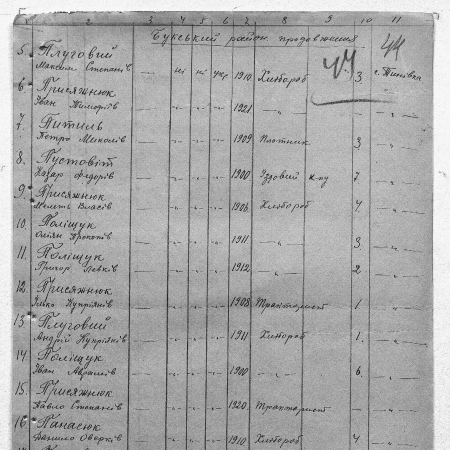 2 3 4 5 6 7 8 9 10 11
Букський район продовження 44
5. Плуговий
Максим Степанів — ні ні укр 1910 Хлібороб 3 с. Тинівка
6. Присяжнюк
Іван Тимофіїв — „ „ „ 1921 — „ — —
7. Питиль
Петро Миколів — „ „ „ 1909 Плотник 3 — „ —
8. Пустовіт
Назар Федорів — „ „ „ 1900 Їздовий 7 — „ —
9. Присяжнюк
Власів — „ „ „ 1906 Хлібороб 4. — „ —
10. Поліщук
Прокопів — „ „ „ 1911. — „ — 3 — „ —
11. Поліщук
Григор Левків — „ „ „ 1912 — „ — 2 — „ —
12. Присяжнюк
Купріянів — „ „ „ 1908 Тракторист 1 — „ —
13. Плуговий
Андрій Купріянів — „ „ „ 1911 Хлібороб 1. — „ —
14. Поліщук
Іван Аврамів — „ „ „ 1900 — „ — 6. — „ —
15. Присяжнюк
Павло Степанів — „ „ „ 1920. Тракторист — — „ —
16. Панасюк
Данило Оверків — „ „ „ 1910 Хлібороб 4. — „ —